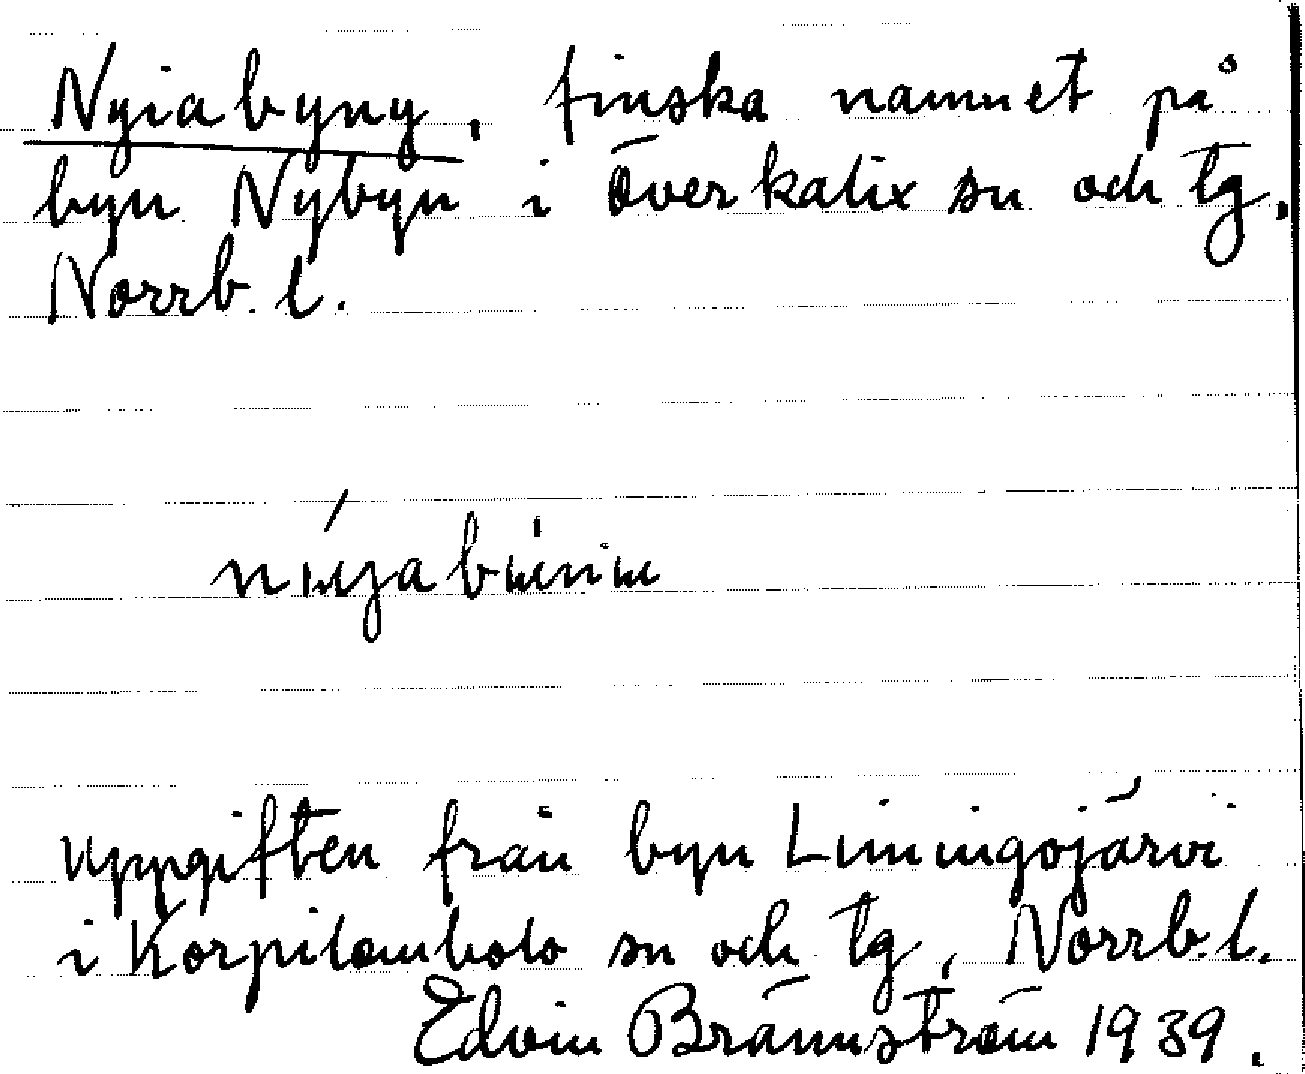 Nyiabyny, finska namnet på
byn Nybyn i Överkalix sn och tg,
Norrb. l.
Uppgiften från byn Liminkojärvi
i Korpilombolo sn och tg, Norrb. l.
Edvin Brännström 1939.